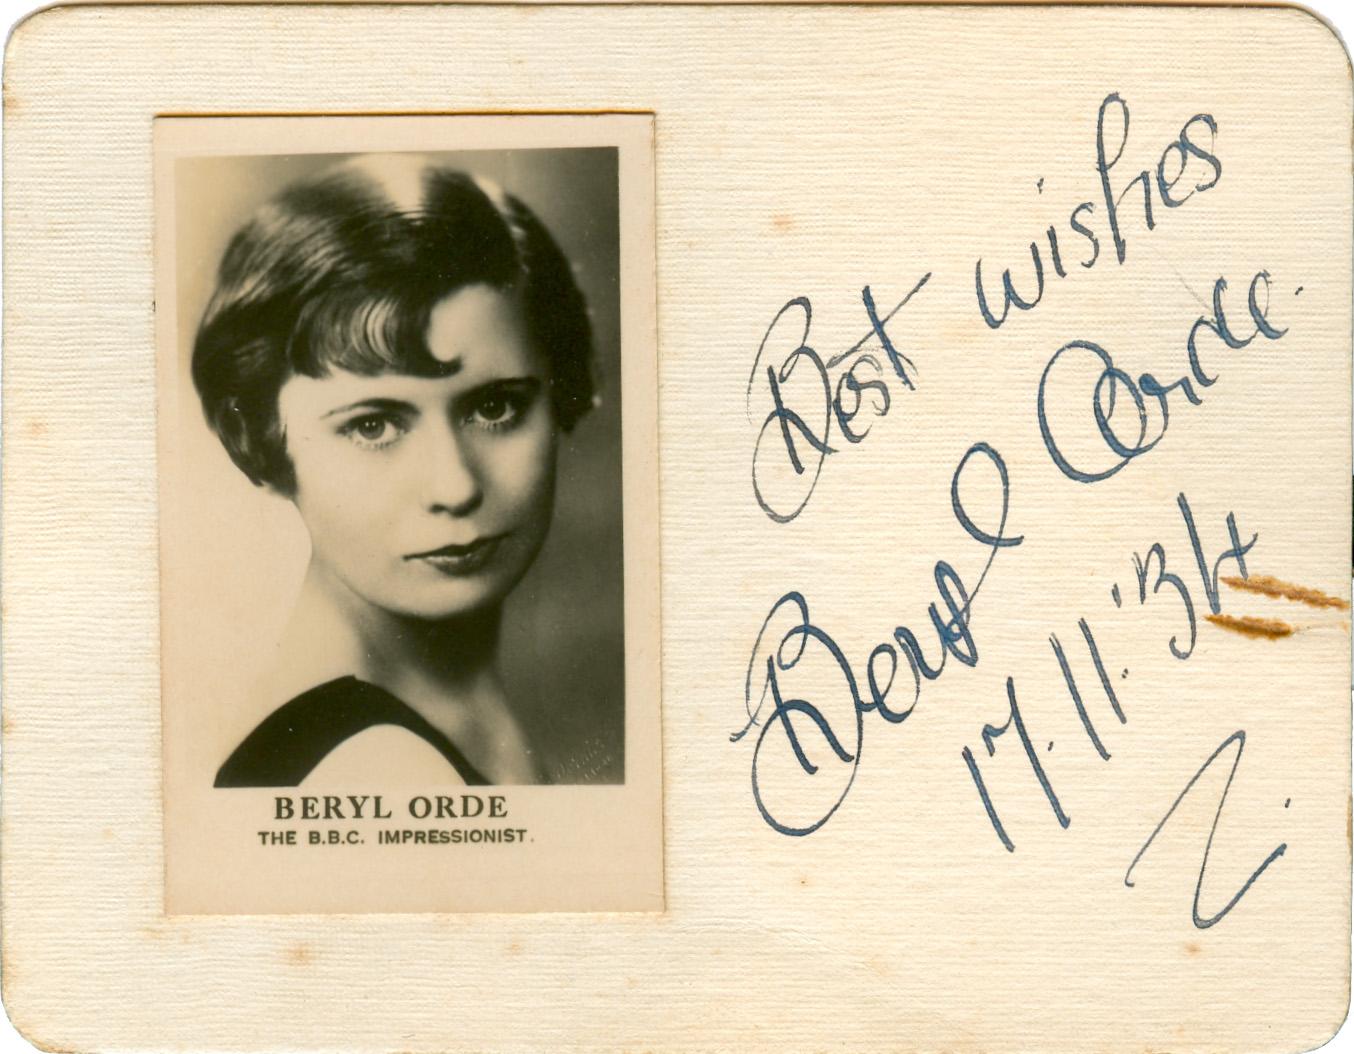 BERYL ORDE
THE B.B.C. IMPRESSIONIST.
Best wishes
Beryl Orde.
17.11.'34